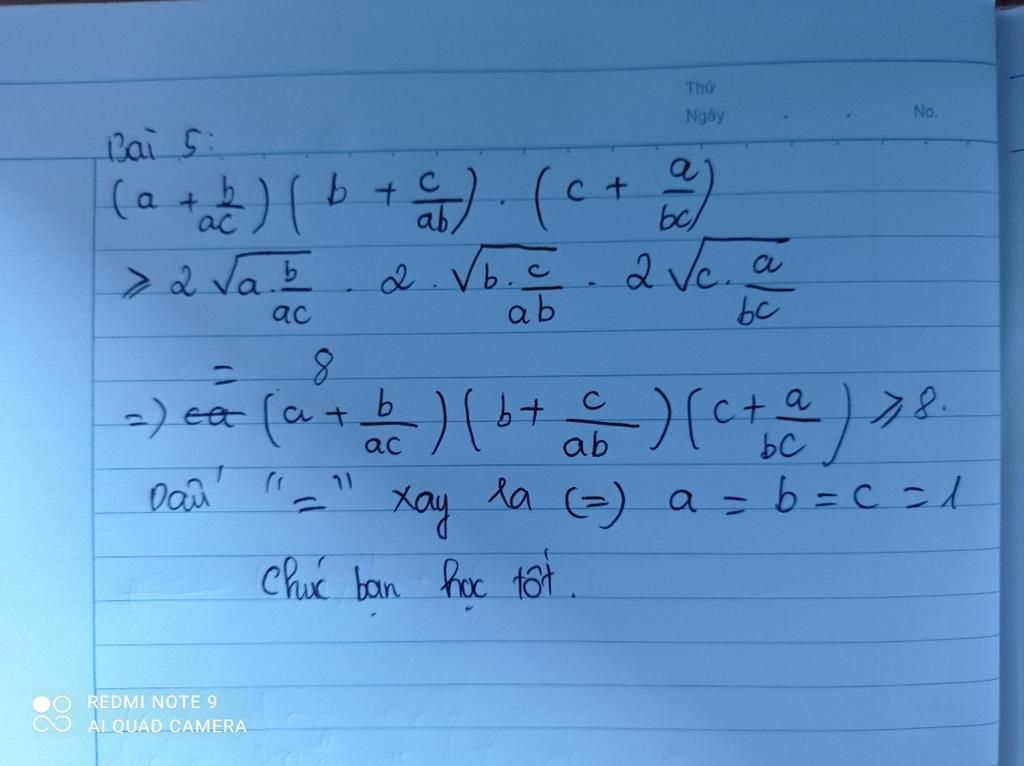 Thứ
Ngày . . No.
Bài 5:
(a + b/ac)(b + c/ab).(c + a/bc)
⩾ 2√(a.b/ac) . 2.√(b.c/ab) . 2√(c.a/bc)
= 8
=) (a + b/ac)(b + c/ab)(c + a/bc) ⩾ 8.
Dấu "=" xay ra (=) a = b = c = 1
Chúc bạn học tốt.
REDMI NOTE 9
AI QUAD CAMERA